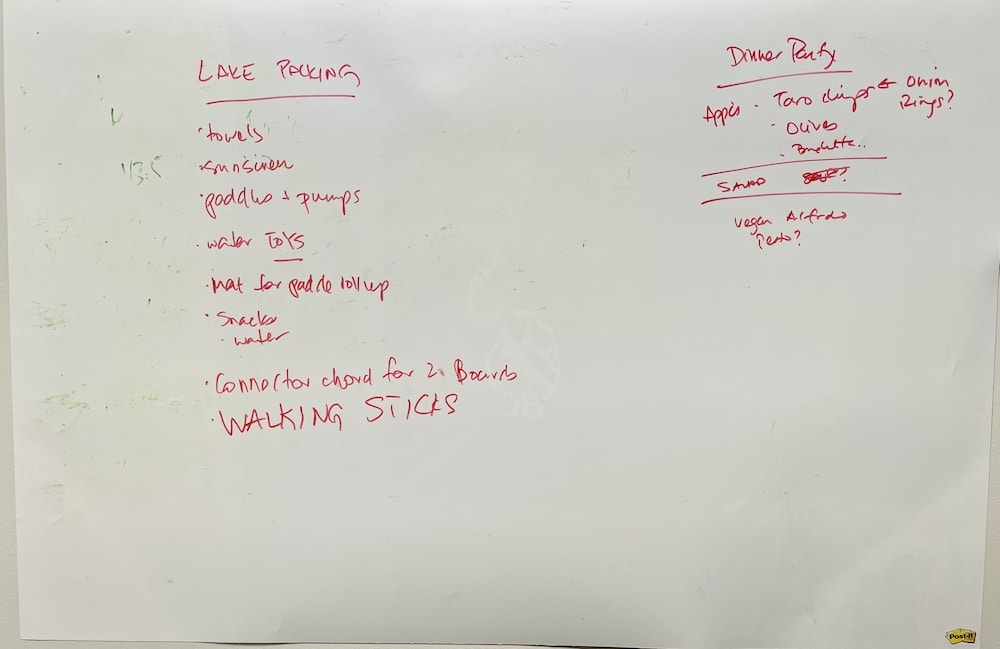 LAKE PACKING
· towels
· sunscreen
· paddles + pumps
· water TOYS
· mat for paddle rollup
· Snacks
· water
· Connector chord for 2 Boards
· WALKING STICKS
Dinner Party
Appies · Taro chips ← Onion Rings?
· Olives
· Bruschetta..
SALAD
Vegan Alfredo
Pesto?
Post-it